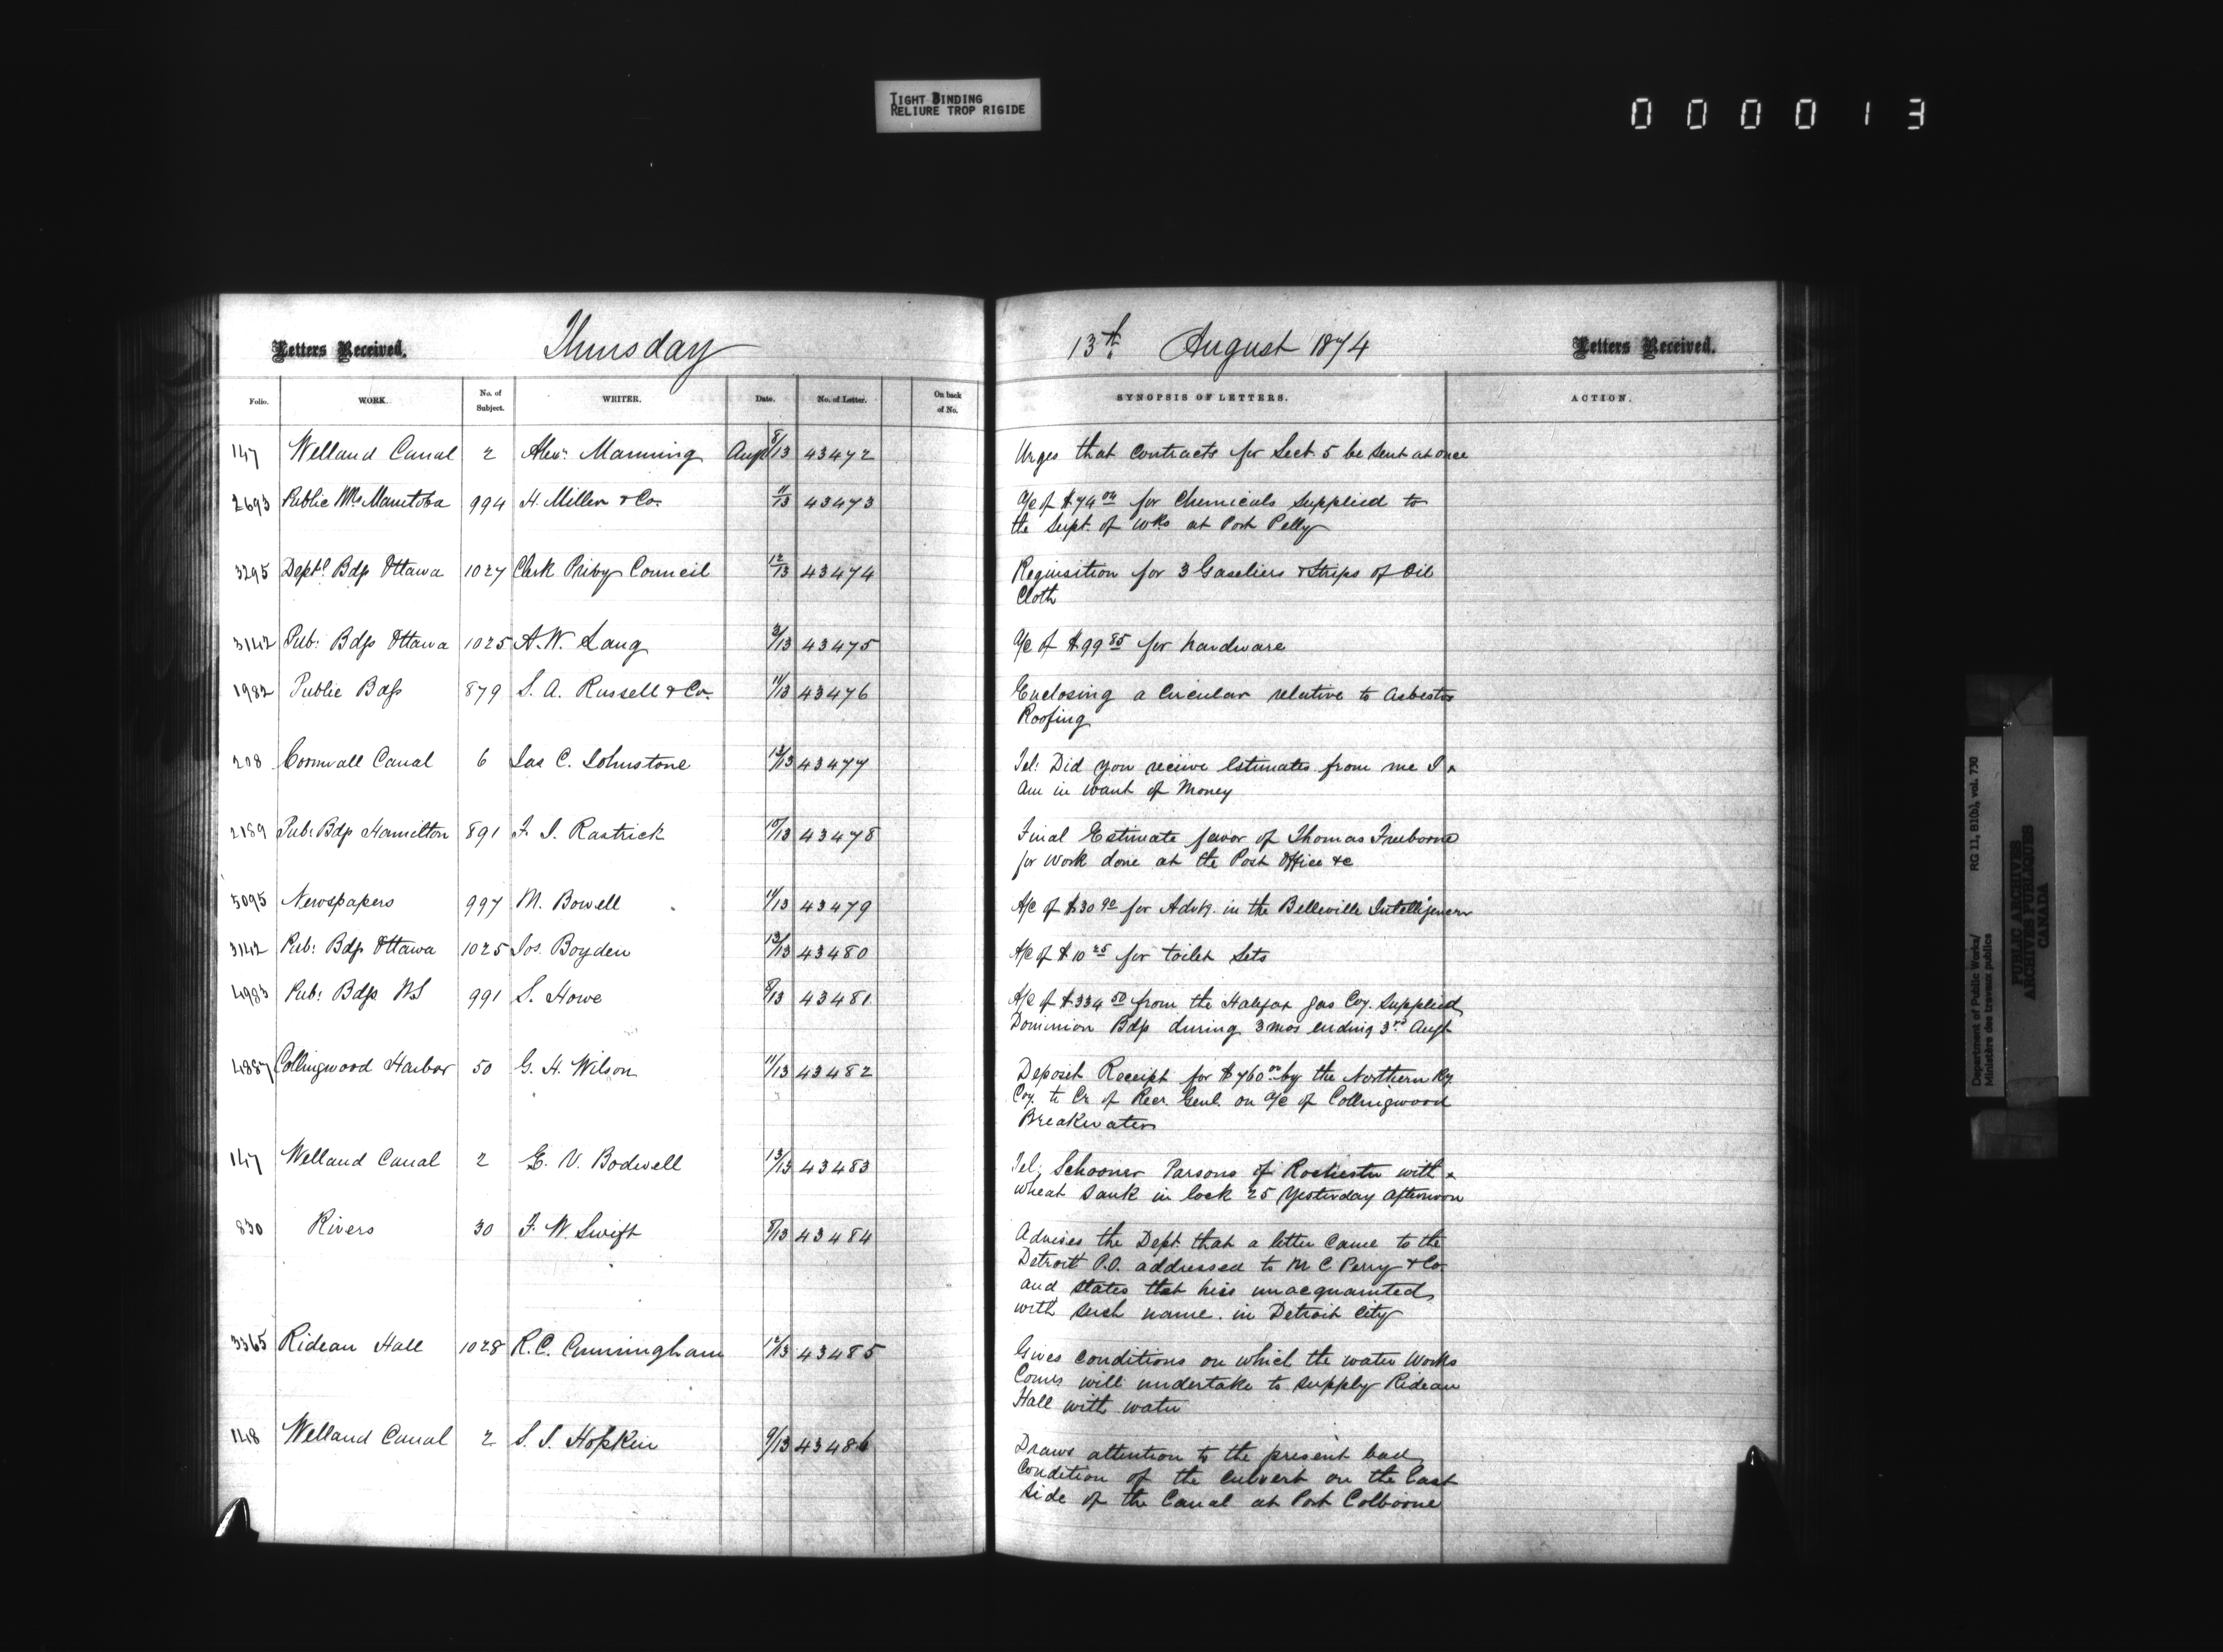 TIGHT BINDING
RELIURE TROP RIGIDE
000013
Letters Received. Thursday 13th August 1874 Letters Received.
Folio. WORK. No. of Subject. WRITER. Date. No. of Letter. On back of No. SYNOPSIS OF LETTERS. ACTION.
147 Welland Canal 2 Alexr Manning Aug 8/13 43472 Urges that contracts for Sect. 5 be sent at once
2693 Public Wks Manitoba 994 H. Miller & Co. 11/13 43473 A/c of $74 00 for Chemicals supplied to
the Supt. of wks at Port Pelly
3295 Deptl Bdgs Ottawa 1027 Clerk Privy Council 12/13 43474 Requisition for 3 Gaseliers & Strips of Oil
Cloth
3142 Pub: Bdgs Ottawa 1025 A. W. Lang 3/13 43475 A/c of $99 85 for hardware
1982 Public Bdgs 879 S. A. Russell & Co. 11/13 43476 Enclosing a Circular relative to Asbestos
Roofing
208 Cornwall Canal 6 Jas C. Johnstone 13/13 43477 Tel: Did you receive Estimates from me I
am in want of Money
2189 Pub: Bdgs Hamilton 891 F. J. Rastrick 10/13 43478 Final Estimate favor of Thomas Freeborne
for work done at the Post Office &c
5095 Newspapers 997 M. Bowell 11/13 43479 A/c of $30 90 for Advtg. in the Belleville Intelligencer
3142 Pub: Bdgs Ottawa 1025 Jos. Boyden 13/13 43480 A/c of $10 25 for toilet Sets
4983 Pub: Bdgs NS 991 S. Howe 8/13 43481 A/c of $334 50 from the Halifax gas Coy. supplied
Dominion Bdgs during 3 mos ending 3rd Augt
4887 Collingwood Harbor 50 G. H. Wilson 11/13 43482 Deposit Receipt for $760 00 by the Northern Ry.
Coy. to Cr of Recr. Genl. on a/c of Collingwood
Breakwater
147 Welland Canal 2 E. V. Bodwell 13/13 43483 Tel: Schooner Parsons of Rochester with
wheat sank in lock 25 Yesterday Afternoon
830 Rivers 30 F. W. Swift 8/13 43484 Advises the Dept. that a letter came to the
Detroit P.O. addressed to M C Perry & Co.
and states that he is unacquainted
with such name. in Detroit City
3365 Rideau Hall 1028 R. C. Cunningham 12/13 43485 Gives conditions on which the water Works
Comrs will undertake to supply Rideau
Hall with water
148 Welland Canal 2 S. J. Hopkin 9/13 43486 Draws attention to the present bad
Condition of the culvert on the East
side of the Canal at Port Colborne
Department of Public Works/ RG 11, B1(b), vol. 730
Ministère des travaux publics
PUBLIC ARCHIVES
ARCHIVES PUBLIQUES
CANADA